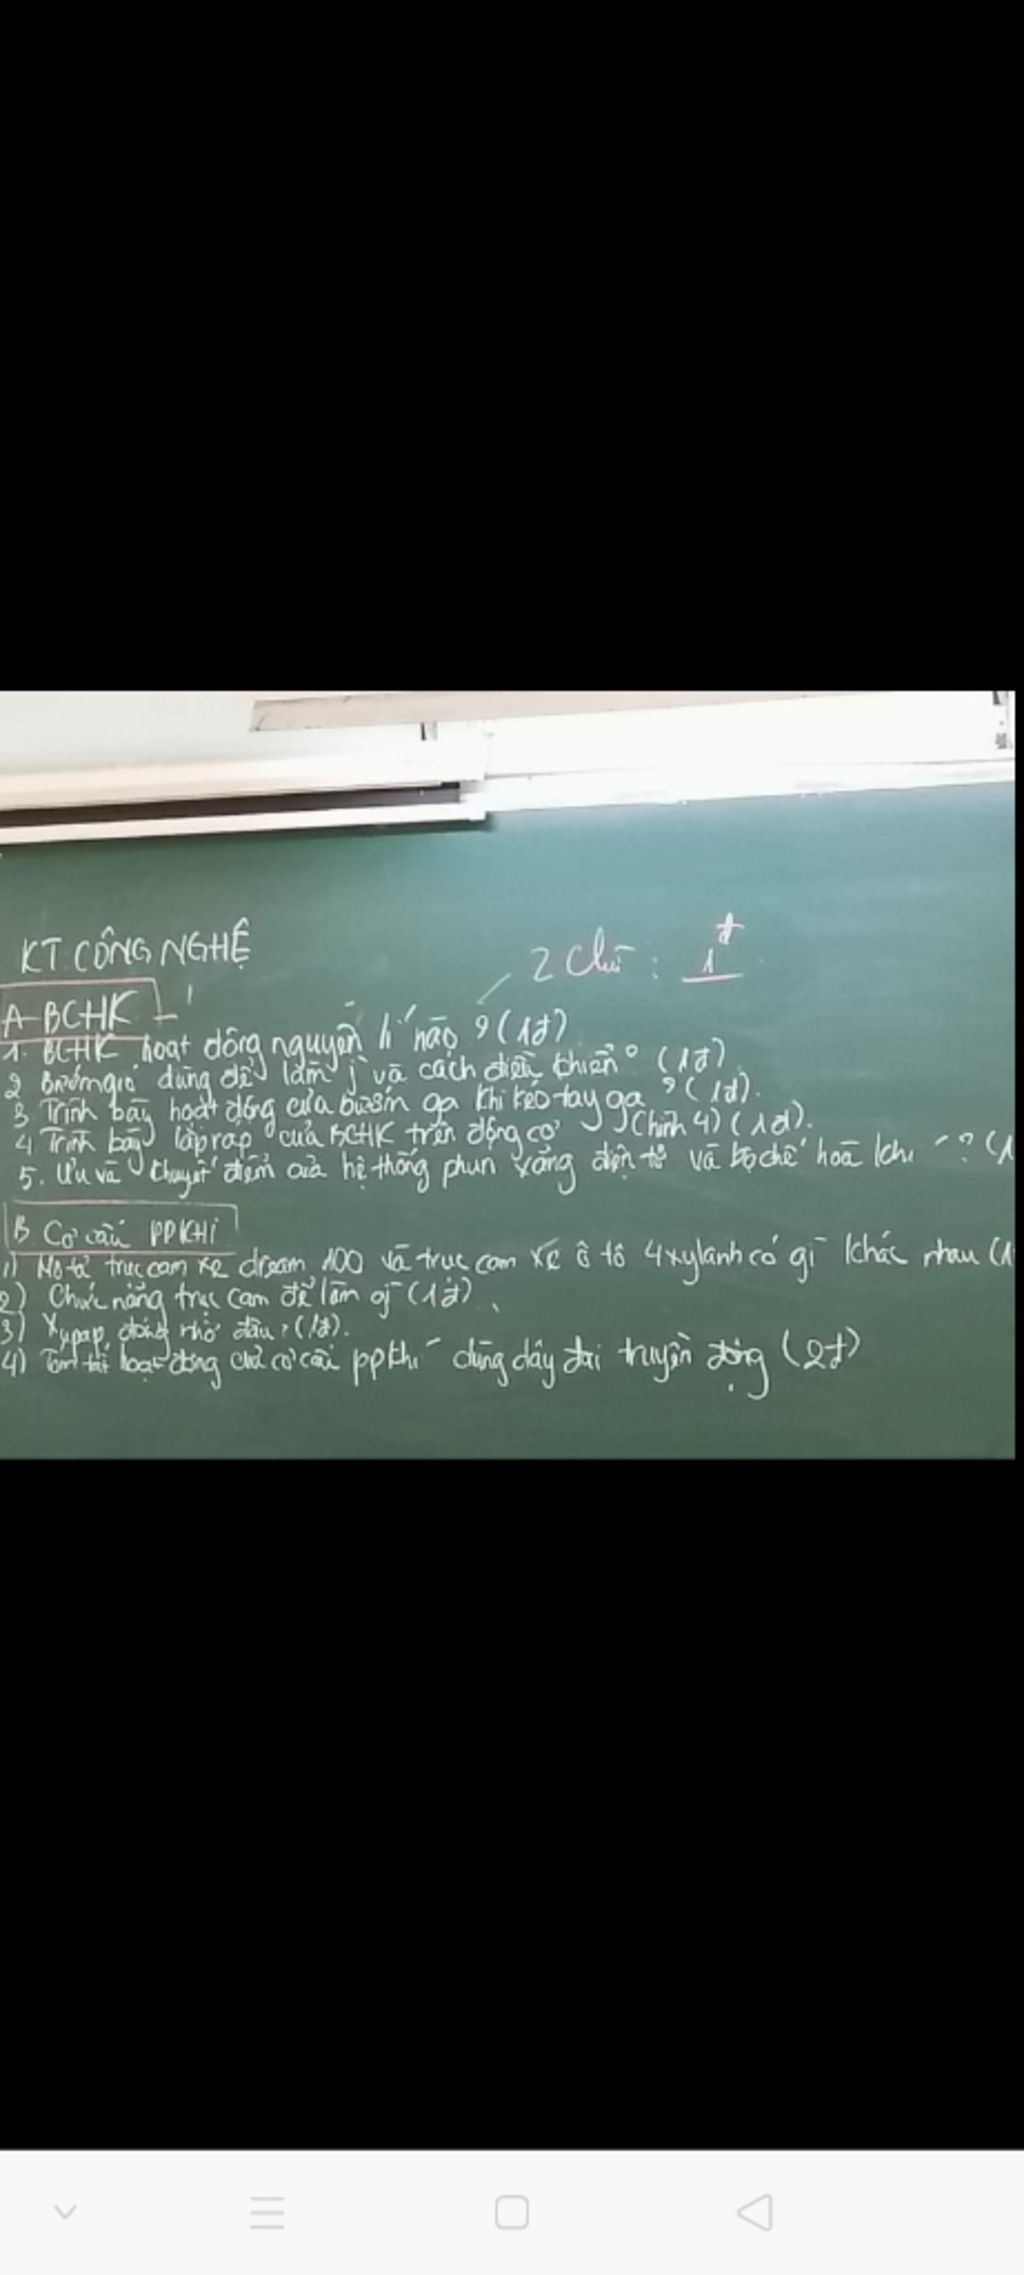 KT. CÔNG NGHỆ
2 chữ : 1đ
A-BCHK
1. BCHK hoạt động nguyên lí nào ? (1đ)
2 Bướm gió dùng để làm j và cách điều khiển (1đ)
3 Trình bày hoạt động của bướm ga khi kéo tay ga ? (1đ).
4 Trình bày lắp ráp của BCHK trên động cơ (hình 4) (1đ).
5. Ưu và khuyết điểm của hệ thống phun xăng điện tử và bộ chế hoà khí ? (1
B Cơ cấu PPKHí
1) Mô tả trục cam xe dream 100 và trục cam xe ô tô 4 xylanh có gì khác nhau (1
2) Chức năng trục cam để làm gì (1đ)
3) Xupap đóng nhờ đâu ? (1đ).
4) Tóm tắt hoạt động của cơ cấu ppkhí dùng dây đai truyền động (2đ)